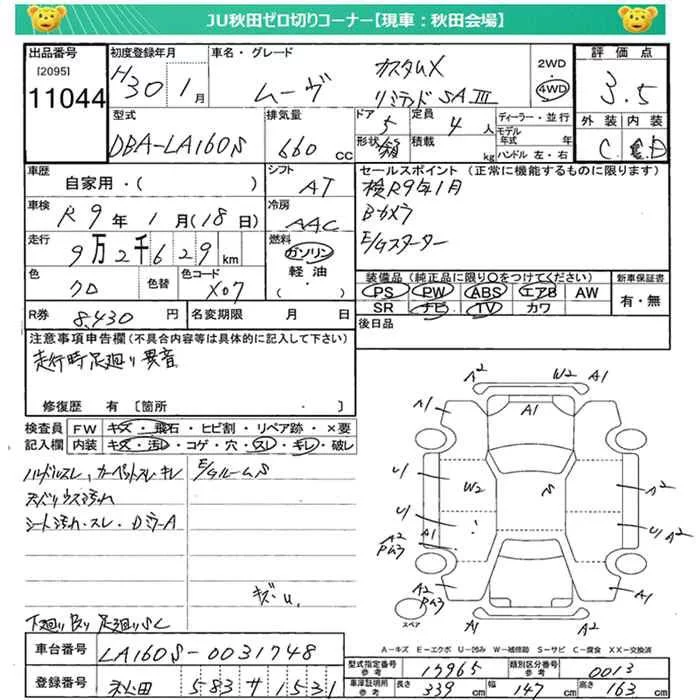 JU秋田ゼロ切りコーナー【現車：秋田会場】
出品番号 [2095] 11044
初度登録年月 H30 1月
車名・グレード ムーヴ カスタムX リミテッド SAⅢ
2WD 4WD
評価点 3.5
外装 C 内装 D
型式 DBA-LA160S
排気量 660 CC
ドア 5 定員 4人
形状 積載 kg
ディーラー・並行
モデル年式 年
ハンドル 左・右
車歴 自家用・( )
シフト AT
セールスポイント(正常に機能するものに限ります)
検R9年1月
Bカメラ
E/Gスターター
車検 R9年1月(18日)
冷房 AAC
走行 9万2千629km
燃料 ガソリン 軽油・
色 クロ 色替 色コード X07
装備品(純正品に限り○をつけてください)
PS PW ABS エアB AW
SR ナビ TV カワ
新車保証書 有・無
R券 8,430円 名変期限 月 日
後日品
注意事項申告欄(不具合内容等は具体的に記入して下さい)
走行時足廻り異音
修復歴 有 [箇所 ・ ]
検査員記入欄
FW キズ・飛石・ヒビ割・リペア跡・×要
内装 キズ・汚レ・コゲ・穴・スレ・キレ・破レ
ハンドルスレ、カーペットスレ・キレ
E/GルームS
シート汚れ・スレ・DミラーA
キズ・U
下廻りS 足廻りSC
A2 W2 A1
A1 A1
U W2 S A2
U A1 U A2
A2 A2 A1
A1 A2
スペア
A-キズ E-エクボ U-凹み W-補修跡 S-サビ C-腐食 XX-交換済
車台番号 LA160S-0031748
登録番号 秋田 583 サ 1531
型式指定番号 参考 17965 類別区分番号 参考 0013
車庫証明用 参考 長さ 339cm 幅 147cm 高さ 163cm